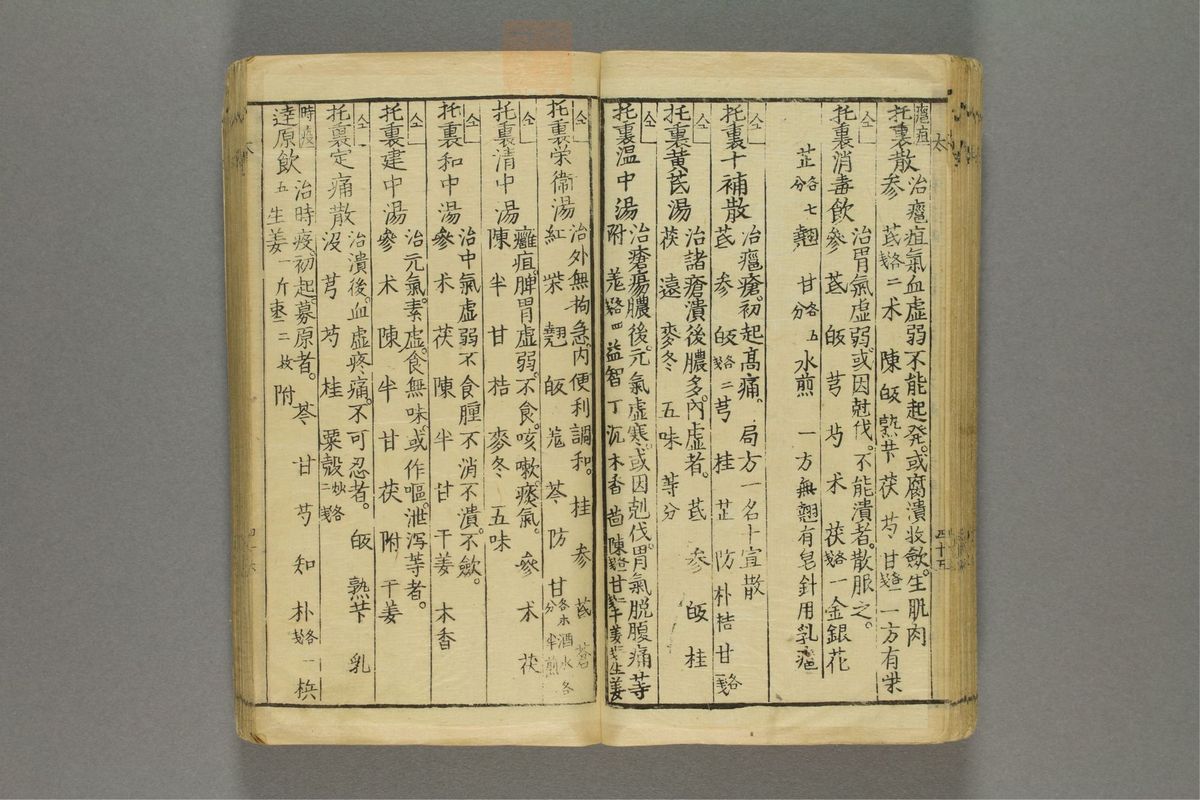 癰疽
托裏散 治癰疽氣血虛弱不能起発。或腐潰收斂。生肌肉
参 芪各二戔 朮 陳 皈 熟芐 茯 芍 甘各一戔 一方有柴
仝
托裏消毒飲 治胃氣虛弱。或因尅伐。不能潰者。散服之。
參 芪 皈 芎 芍 朮 茯各一戔 金銀花
芷各七分 翹 甘各五分 水煎 一方無翹有皂針用乳
仝
托裏十補散 治癰瘡。初起髙痛。 局方一名十宣散
芪 参 皈各二戔 芎 桂 芷 防 朴 桔 甘各一戔
仝
托裏黃芪湯 治諸瘡潰後膿多。內虛者。 芪 參 皈 桂
茯 遠 麥冬 五味 等分
仝
托裏温中湯 治瘡瘍膿後。元氣虛寒。或因剋伐。胃氣脱腹痛等
附 羗各四戔 益智 丁 沉 木香 茴 陳 甘 干姜 生姜
四十五
仝
托裏荣衞湯 治外無拘急。內便利調和。 桂 参 芪 蒼
紅 柴 翹 皈 芩 防 甘各一分 水酒各半煎
仝
托裏清中湯 癰疽。脾胃虛弱。不食。咳嗽。痰氣。 參 朮 茯
陳 半 甘 桔 麥冬 五味
仝
托裏和中湯 治中氣虛弱不食腫不消不潰。不歛。
參 朮 茯 陳 半 甘 干姜 木香
仝
托裏建中湯 治元氣素虛。食無味。或作嘔。泄泻等者。
參 朮 陳 半 甘 茯 附 干姜
仝
托裏定痛散 治潰後。血虛疼痛。不可忍者。 皈 熟芐 乳
沒 芎 芍 桂 粟殼炒各二戔
時疫
達原飲 治時疫。初起。募原者。 芩 甘 芍 知 朴各一戔 梹
五 生姜一斤 枣二枚 附